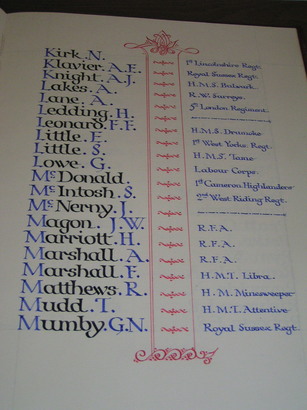 Kirk. N.
Klavier. A.E. 1st Lincolnshire Regt.
Knight. A.J. Royal Sussex Regt.
Lakes. A. H.M.S. Bulwark.
Lane. A. R.W. Surreys.
Ledding. H. 5th London Regiment.
Leonard. F.F.
Little. E. H.M.S.
Little. S. 1st West Yorks. Regt.
Lowe. G. H.M.S.
McDonald. Labour Corps.
McIntosh. S. 1st Cameron Highlanders
McNerny. J. 2nd West Riding Regt.
Magon. J.W.
Marriott. H. R.F.A.
Marshall. A. R.F.A.
Marshall. F. R.F.A.
Matthews. R. H.M.T. Libra.
Mudd. T. H.M. Minesweeper
Mumby. G.N. H.M.T. Attentive
Royal Sussex Regt.